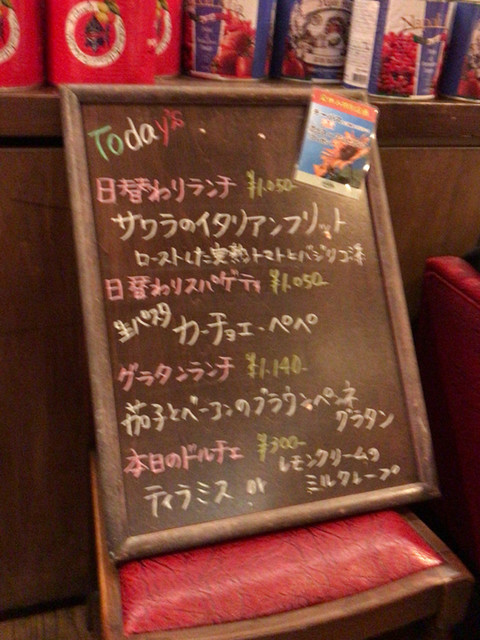 Today's
日替わりランチ ¥1.050-
サワラのイタリアンフリット
ローストした完熟トマトとバジリコ添
日替わりスパゲティ ¥1.050-
生パスタ カーチョエ・ペペ
グラタンランチ ¥1.140-
茄子とベーコンのブラウンペンネ
グラタン
本日のドルチェ ¥300-
ティラミス or レモンクリームの
ミルクレープ